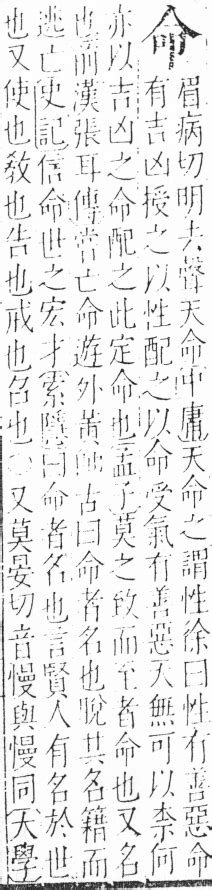 命
眉病切明去聲天命中庸天命之謂性徐曰性有善惡命
有吉凶授之以性配之以命受氣有善惡天無可以柰何
亦以吉凶之命配之此定命也孟子莫之致而至者命也又名
也前漢張耳傳嘗亡命遊外黃師古曰命者名也脫其名籍而
逃亡史記信命世之宏才索隱曰命者名也言賢人有名於世
也又使也敎也告也戒也召也○又莫晏切音慢與慢同大學